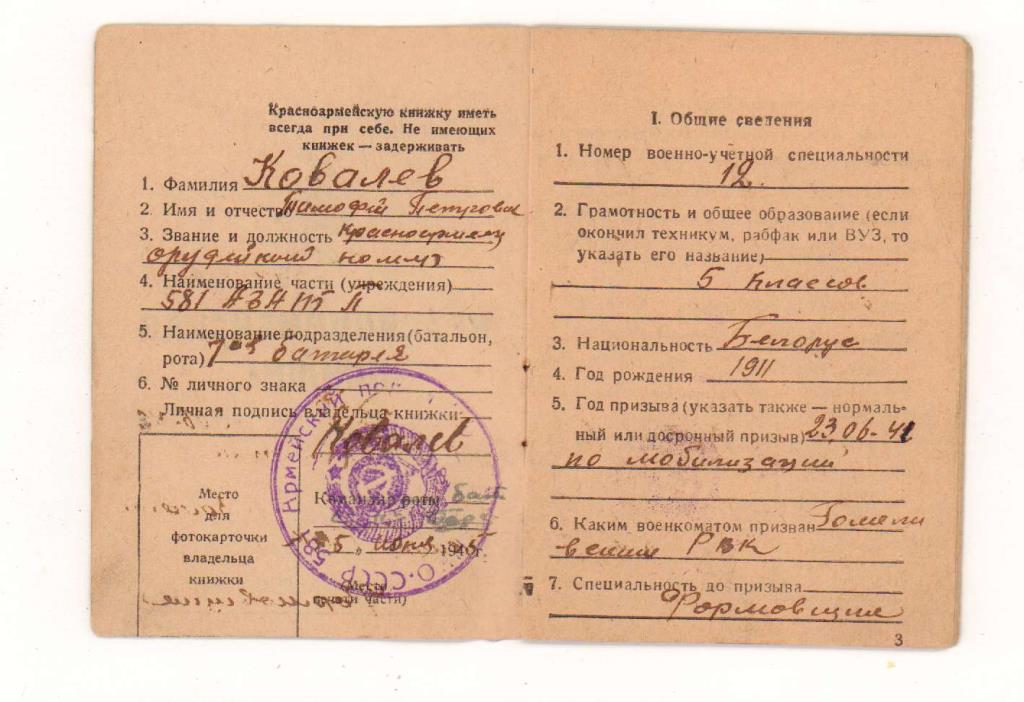 Красноармейскую книжку иметь
всегда при себе. Не имеющих
книжек — задерживать
1. Фамилия Ковалев
2. Имя и отчество Тимофей Петрович
3. Звание и должность красноармеец
орудийный номер
4. Наименование части (учреждения)
581 АЗАПП
5. Наименование подразделения (батальон,
рота) 7ая батарея
6. № личного знака
Личная подпись владельца книжки
Ковалев
Командир роты
5 июня 1945г.
(Место
печати части)
Место
для
фотокарточки
владельца
книжки
581 Армейский
О-СССР
I. Общие сведения
1. Номер военно-учетной специальности
12.
2. Грамотность и общее образование (если
окончил техникум, рабфак или ВУЗ, то
указать его название)
5 классов
3. Национальность Белорус
4. Год рождения 1911
5. Год призыва (указать также — нормаль-
ный или досрочный призыв) 23.06-41
по мобилизации
6. Каким военкоматом призван
РВК
7. Специальность до призыва
Формовщик
3